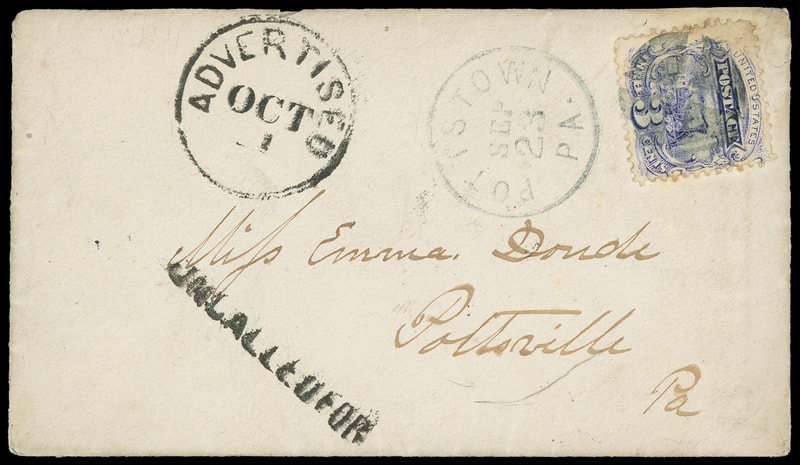 ADVERTISED
OCT
1
POTTSTOWN PA.
SEP
23
UNITED STATES
POSTAGE
3
Miss Emma. Donde
Pottsville
Pa
UNCALLED FOR